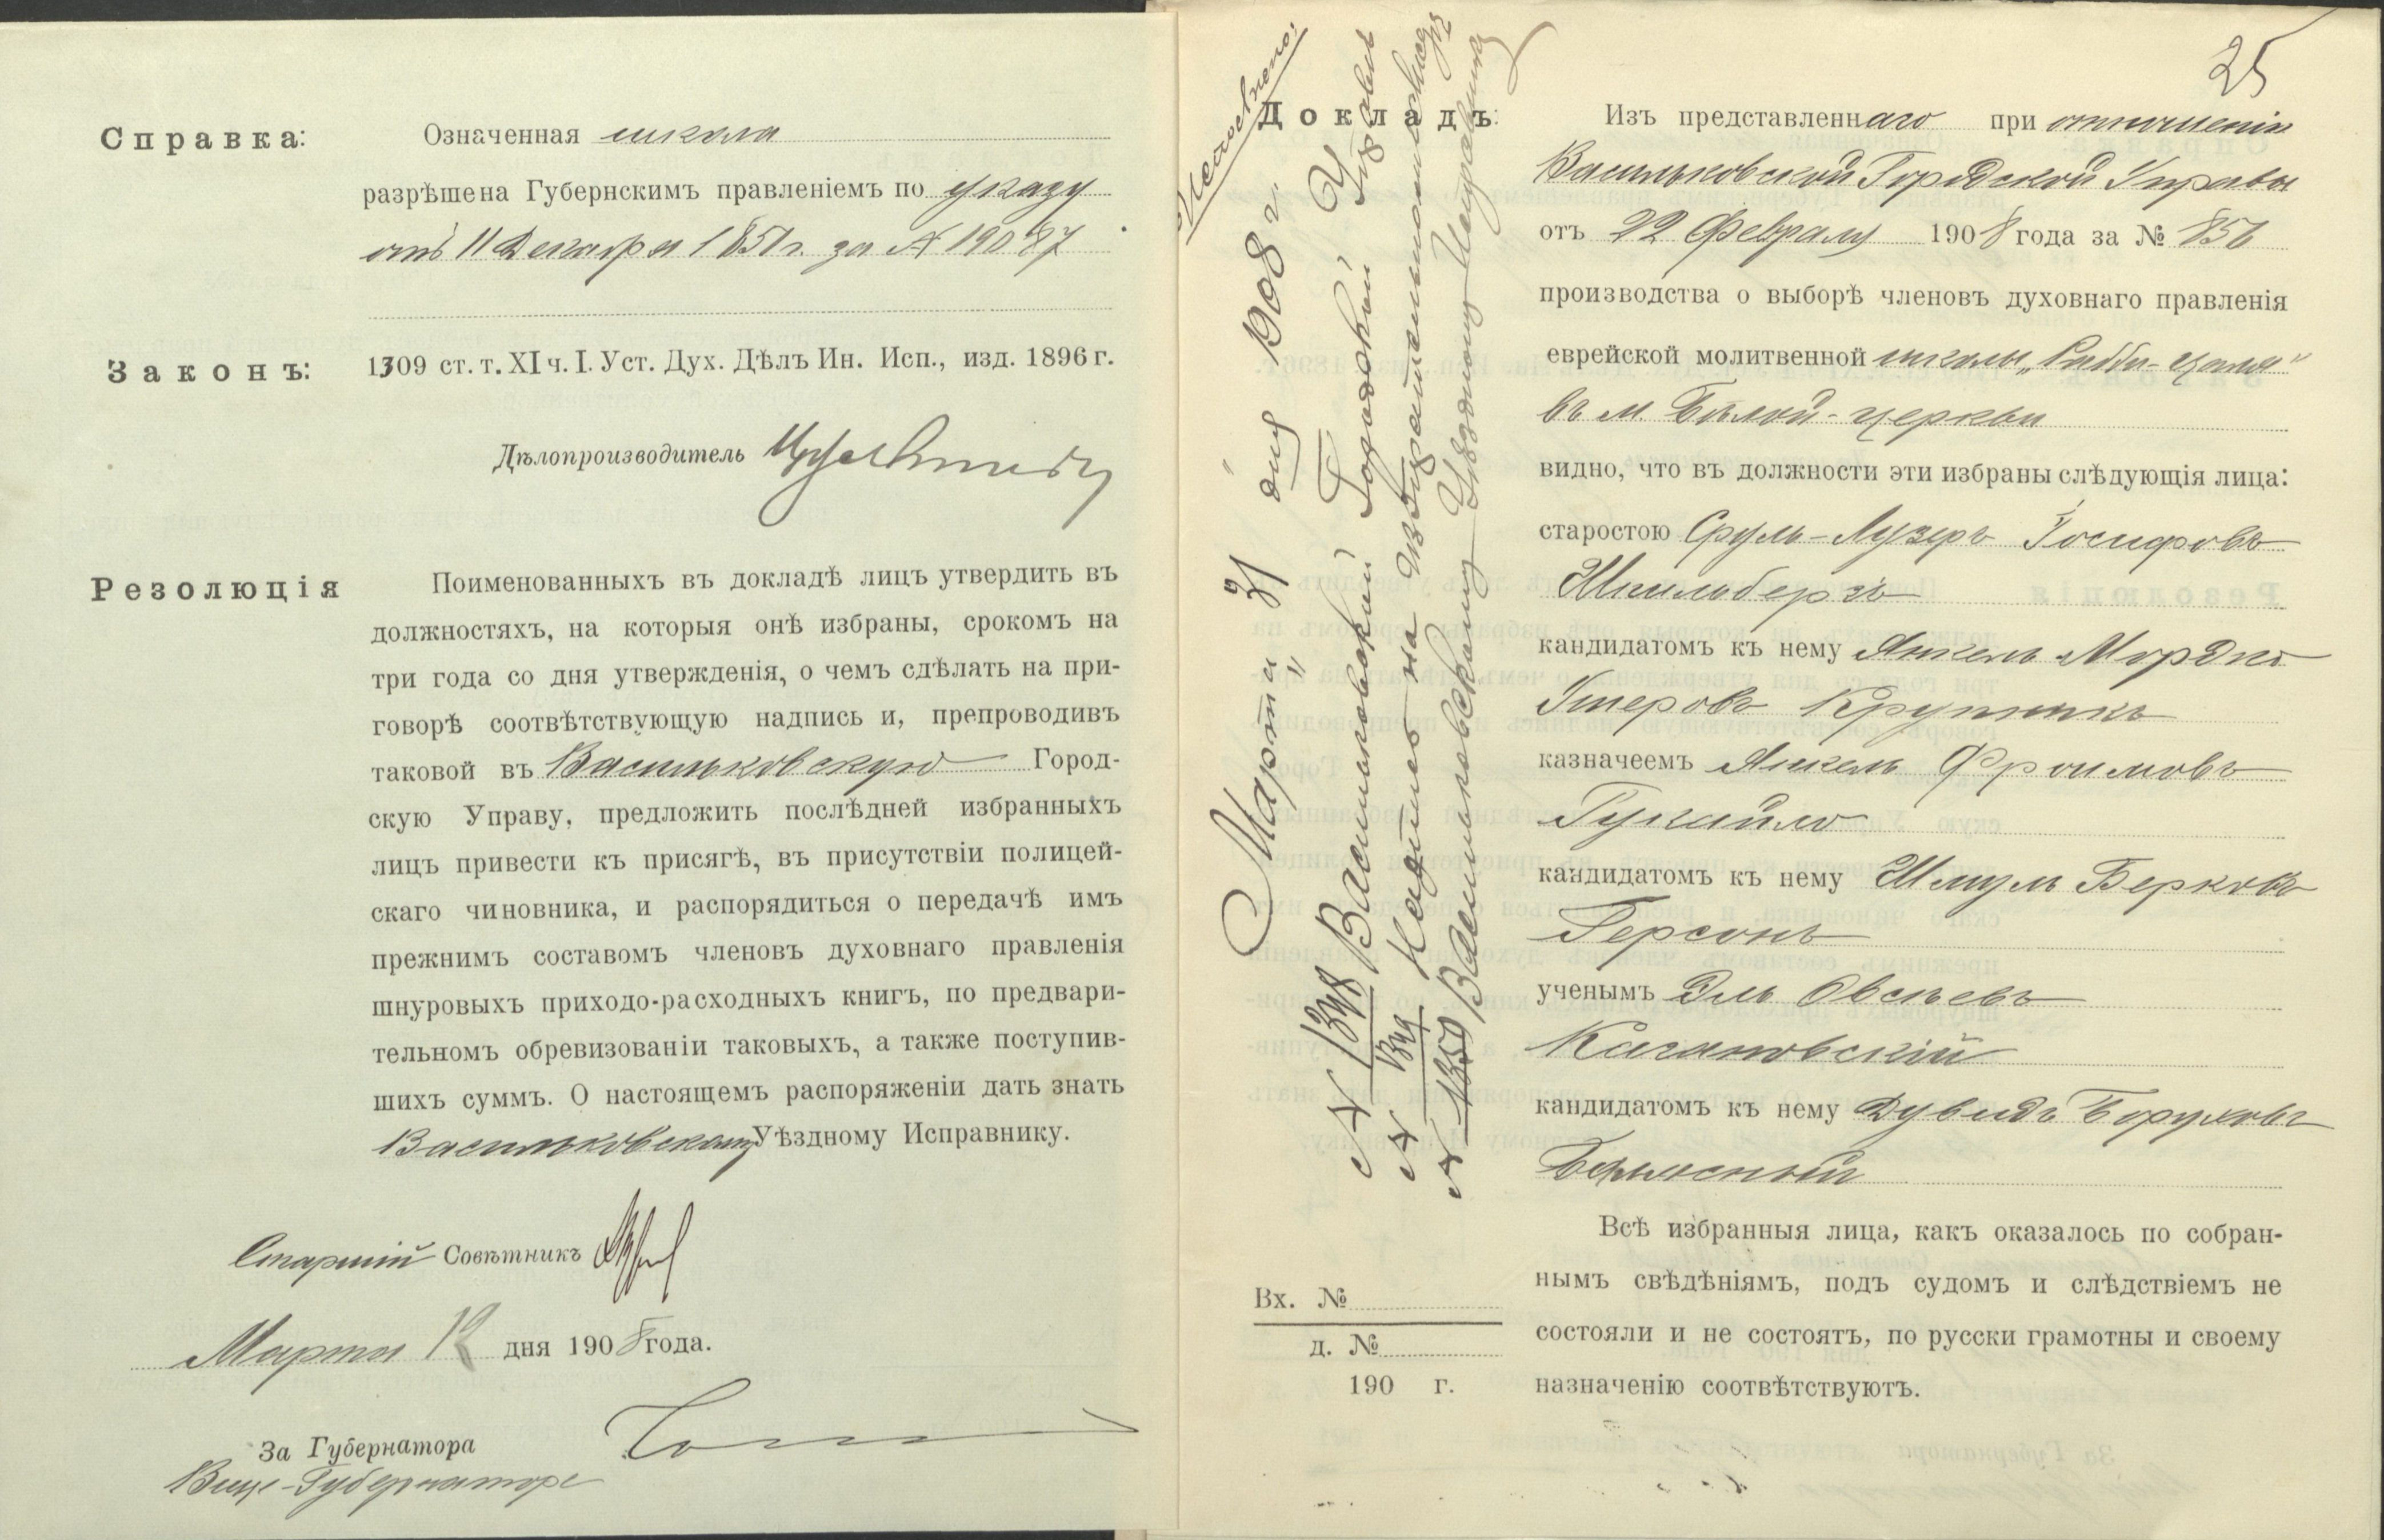 Справка:
Означенная школа
разрѣшена Губернскимъ правленіемъ по указу
отъ 11 Декабря 1851 г. за № 19087
Законъ:
1309 ст. т. XI ч. I. Уст. Дух. Дѣлъ Ин. Исп., изд. 1896 г.
Дѣлопроизводитель
Резолюція
Поименованныхъ въ докладѣ лицъ утвердить въ
должностяхъ, на которыя онѣ избраны, срокомъ на
три года со дня утвержденія, о чемъ сдѣлать на при-
говорѣ соотвѣтствующую надпись и, препроводивъ
таковой въ Васильковскую Город-
скую Управу, предложить послѣдней избранныхъ
лицъ привести къ присягѣ, въ присутствіи полицей-
скаго чиновника, и распорядиться о передачѣ имъ
прежнимъ составомъ членовъ духовнаго правленія
шнуровыхъ приходо-расходныхъ книгъ, по предвари-
тельномъ обревизованіи таковыхъ, а также поступив-
шихъ суммъ. О настоящемъ распоряженіи дать знать
Васильковскому Уѣздному Исправнику.
Старшій Совѣтникъ
Марта 12 дня 1908 года.
За Губернатора
Вице-Губернаторъ
25
Докладъ:
Исполнено:
Марта "31" дня 1908 г.
№ 1348 Васильковской Городской Управѣ
№ 1349 Надпись на избирательномъ листѣ
№ 1350 Васильковскому Уѣздному Исправнику
Вх. №
д. №
190 г.
Изъ представленнаго при отношеніи
Васильковской Городской Управы
отъ 22 Февраля 1908 года за № 856
производства о выборѣ членовъ духовнаго правленія
еврейской молитвенной школы „Рабби-Цаля"
въ м. Бѣлой-Церкви
видно, что въ должности эти избраны слѣдующія лица:
старостою Сруль-Лузеръ Іосифовъ
Шпильбергъ
кандидатомъ къ нему Янкель Мордко
Ушеровъ Крупникъ
казначеемъ Янкель Фроимовъ
Гугайло
кандидатомъ къ нему Шмуль Берковъ
Герсонъ
ученымъ Эль Овсѣевъ
Кагановскій
кандидатомъ къ нему Дувидъ Боруховъ
Всѣ избранныя лица, какъ оказалось по собран-
нымъ свѣдѣніямъ, подъ судомъ и слѣдствіемъ не
состояли и не состоятъ, по русски грамотны и своему
назначенію соотвѣтствуютъ.